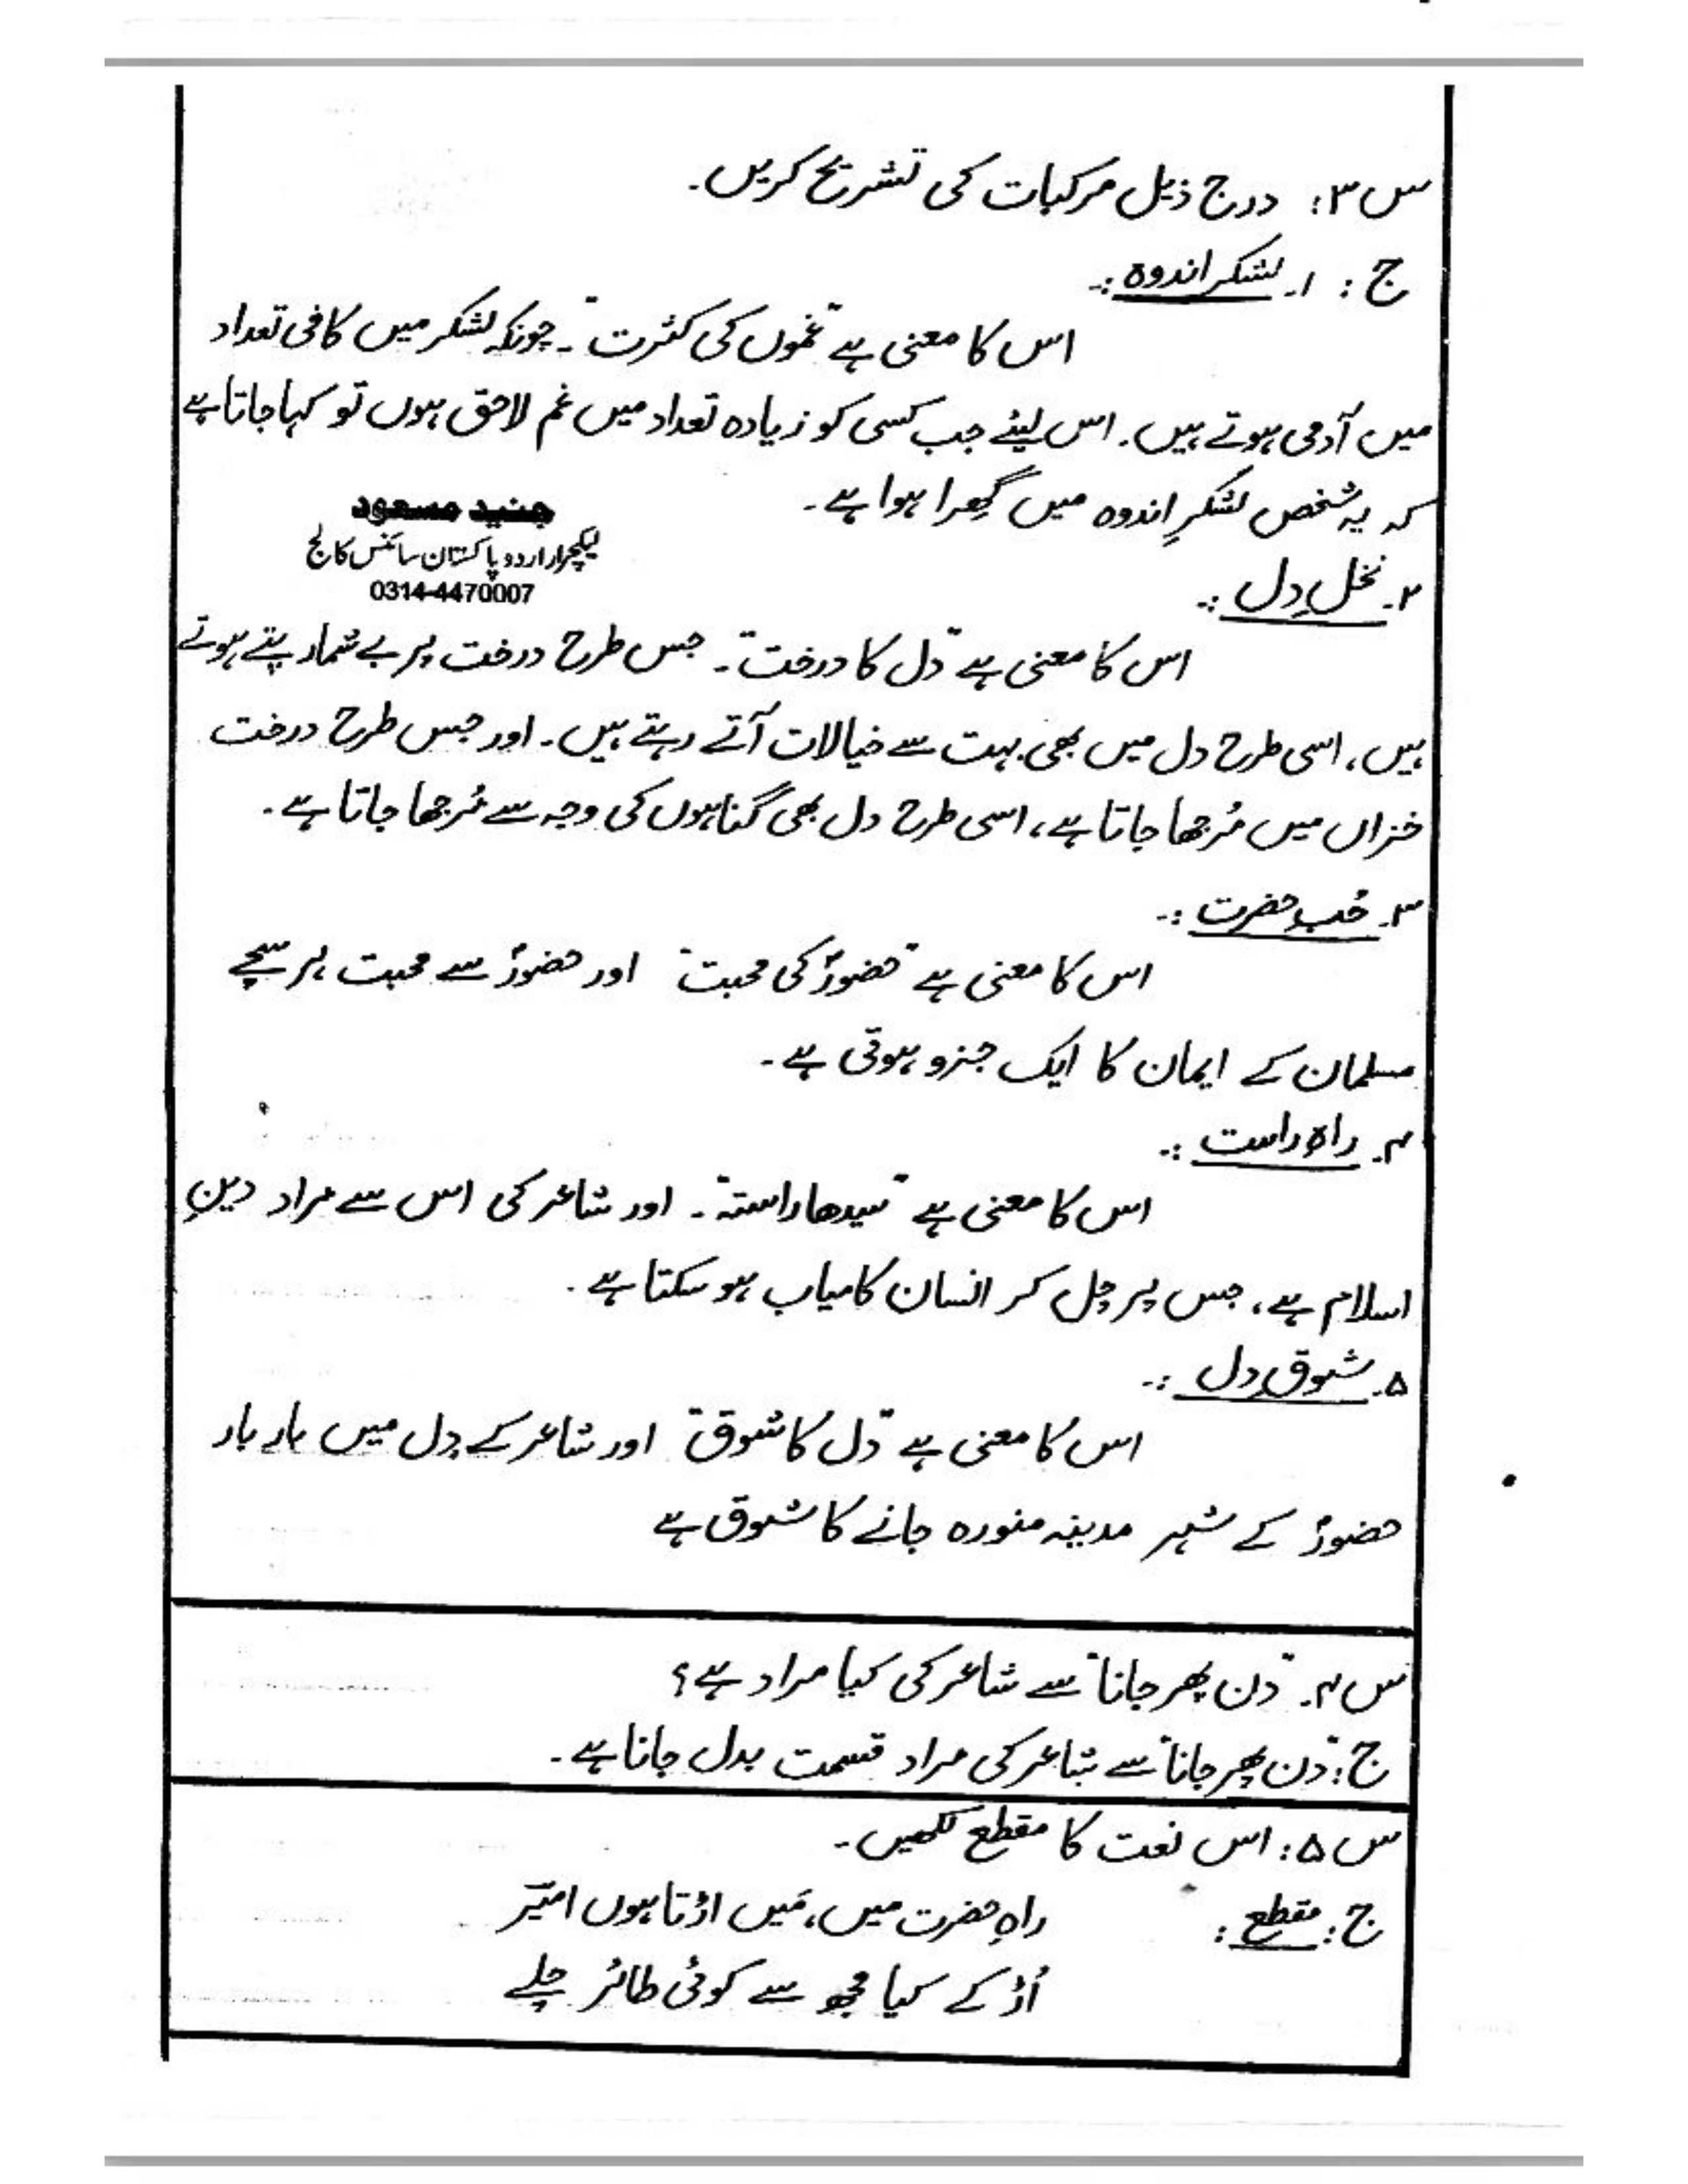 س۳: درج ذیل مرکبات کی تشریح کریں۔
ج: ۱۔ لشکر اندوہ :۔
اس کا معنی ہے "غموں کی کثرت"۔ چونکہ لشکر میں کافی تعداد
میں آدمی ہوتے ہیں۔ اس لیئے جب کسی کو زیادہ تعداد میں غم لاحق ہوں تو کہا جاتا ہے
کہ یہ شخص لشکرِ اندوہ میں گِھرا ہوا ہے۔
جنید مسعود
لیکچرار اردو پاکستان سائنس کالج
0314-4470007
۲۔ نخلِ دل :۔
اس کا معنی ہے "دل کا درخت"۔ جس طرح درخت پر بے شمار پتے ہوتے
ہیں، اسی طرح دل میں بھی بہت سے خیالات آتے رہتے ہیں۔ اور جس طرح درخت
خزاں میں مُرجھا جاتا ہے، اسی طرح دل بھی گناہوں کی وجہ سے مُرجھا جاتا ہے۔
۳۔ حُبِ حضرت :۔
اس کا معنی ہے "حضورؐ کی محبت" اور حضورؐ سے محبت ہر سچے
مسلمان کے ایمان کا ایک جزو ہوتی ہے۔
۴۔ راہِ راست :۔
اس کا معنی ہے "سیدھا راستہ"۔ اور شاعر کی اس سے مراد دینِ
اسلام ہے، جس پر چل کر انسان کامیاب ہو سکتا ہے۔
۵۔ شوقِ دل :۔
اس کا معنی ہے "دل کا شوق" اور شاعر کے دل میں بار بار
حضورؐ کے شہر مدینہ منورہ جانے کا شوق ہے
س۴۔ "دن پھر جانا" سے شاعر کی کیا مراد ہے؟
ج: "دن پھر جانا" سے شاعر کی مراد قسمت بدل جانا ہے۔
س۵: اس نعت کا مقطع لکھیں۔
ج: مقطع: راہِ حضرت میں، مَیں اڑتا ہوں امیؔر
اُڑ کے کیا مجھ سے کوئی طائر چلے